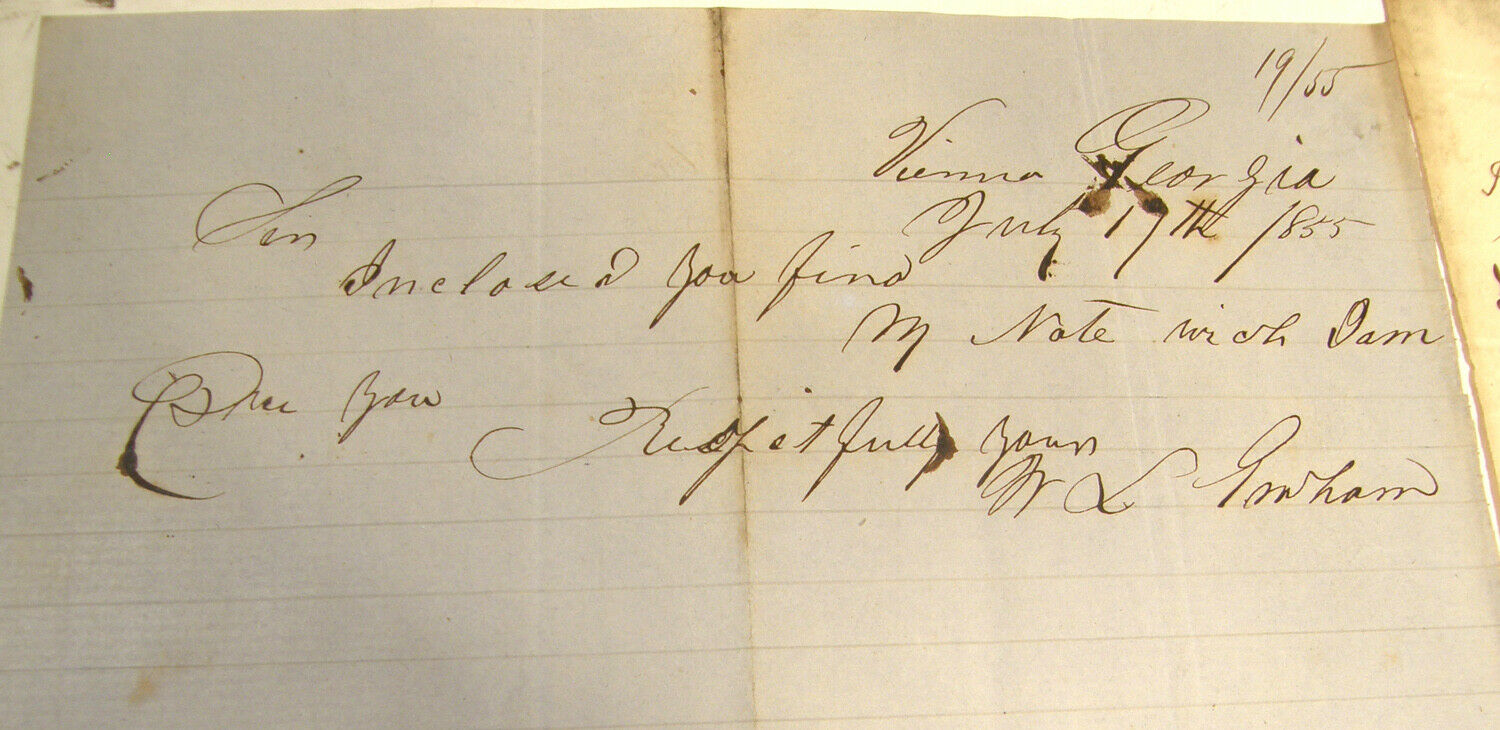 19/55
Vienna Georgia
July 17th 1855
Sir
Inclosed you find
My Note wich I am
Due you
Respectfully yours
W L Graham